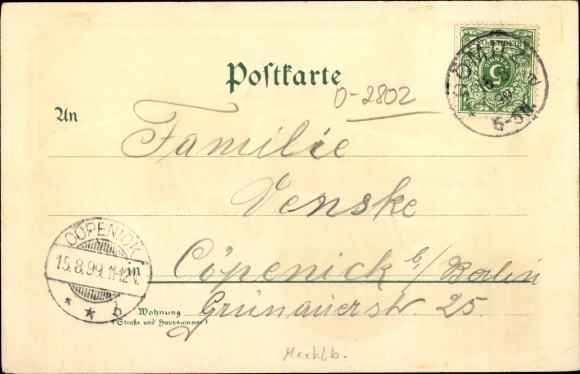 Postkarte
O-2802
An
Familie
Venske
in Cöpenick b/Berlin
Wohnung
(Straße und Hausnummer)
Grünauerstr. 25.
CÖPENICK
15.8.99. 11-12V.
* * b
DÖMITZ
5-6N.
5
Mecklb.